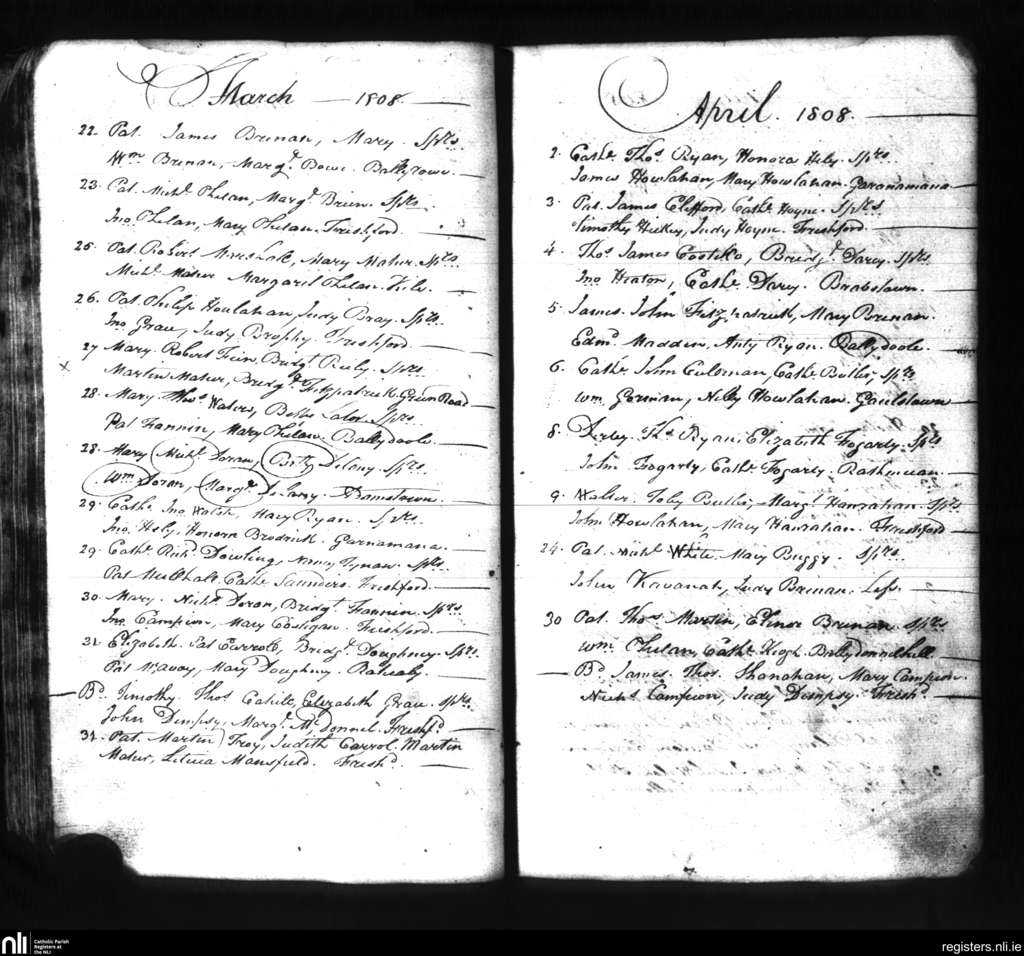 March 1808
22. Pat. James Brenan, Mary. Sprs.
Wm Brenan, Margt. Bowe. Ballyrowe.
23. Pat. Michl. Phelan, Margt. Brien. Sprs.
Jno. Phelan, Mary Phelan. Freshford.
25. Pat. Robert Marshall, Mary Maher. Sprs.
Michl. Maher Margaret Phelan.
26. Pat. Philip Houlahan, Judy Bray. Sprs.
Jno. Grau, Judy Brophy. Freshford.
27 Mary. Robert Bridgt. Reily. Sprs.
Martin Maher, Bridgt. Fitzpatrick. Green Road
28. Mary. Thos. Waters, Lalor Sprs.
Pat Fannin, Mary Phelan. Ballydoole.
28. Mary Michl. Doran, Betty Delany. Sprs.
Wm Doran, Margt. Delany.
29. Cathe. Jno. Walsh, Mary Ryan. Sprs.
Jno. Hely, Honora Brodrick. Garnamana.
29. Cathe. Richd. Dowling, Nancy Tynan. Sprs.
Pat Mulhall, Cathe. Saunders. Freshford.
30. Mary. Nichs. Doran, Bridgt. Fannin. Sprs.
Jno. Campion, Mary Costigan. Freshford.
31 Elizabeth. Pat Carroll, Bridgt. Doughney. Sprs.
Pat McAvoy, Mary Doughny.
Bd. Timothy. Thos Cahill, Elizabeth Grau. Sprs.
John Dempsy, Margt. McDonnel. Freshfd.
31. Pat. Martin Troy, Judith Carrol. Martin
Maher, Mansfield. Freshd.
April. 1808.
2. Cathe. Thos. Ryan, Honora Hely. Sprs.
James Howlahan, Mary Howlahan. Garanamana
3. Pat. James Clifford, Cathe. Hoyne. Sprs
Timothy Hickey, Judy Hoyne. Freshford.
4. Thos. James Costillo, Bridgt. Darcy. Sprs.
Jno. Heaton, Cathe. Darcy. Brabstown.
5. James. John Fitzpatrick, Mary Brenan.
Edmd. Madden, Anty Ryan. Ballydoole.
6. Cathe. John Coleman, Cathe. Butler, Sprs
Wm. German, Nelly Howlahan. Gaulstown
8. Derby. Thos. Ryan, Elizabeth Fogarty. Sprs
John Fogarty, Cathe. Fogarty.
9. Walter. Toby Butler, Margt. Hanrahan. Sprs.
John Howlahan, Mary Hanrahan. Freshford
24. Pat. Michl. White, Mary Buggy. Sprs.
John Kavanah, Judy Brenan.
30 Pat. Thos. Martin, Elinor Brenan. Sprs
Wm. Phelan, Cathe. Keogh. Ballydonnelhill
Bd. James. Thos. Shanahan, Mary Campion.
Nichs. Campion, Judy Dempsy. Freshd.
nli Catholic Parish
Registers at
the NLI
registers.nli.ie